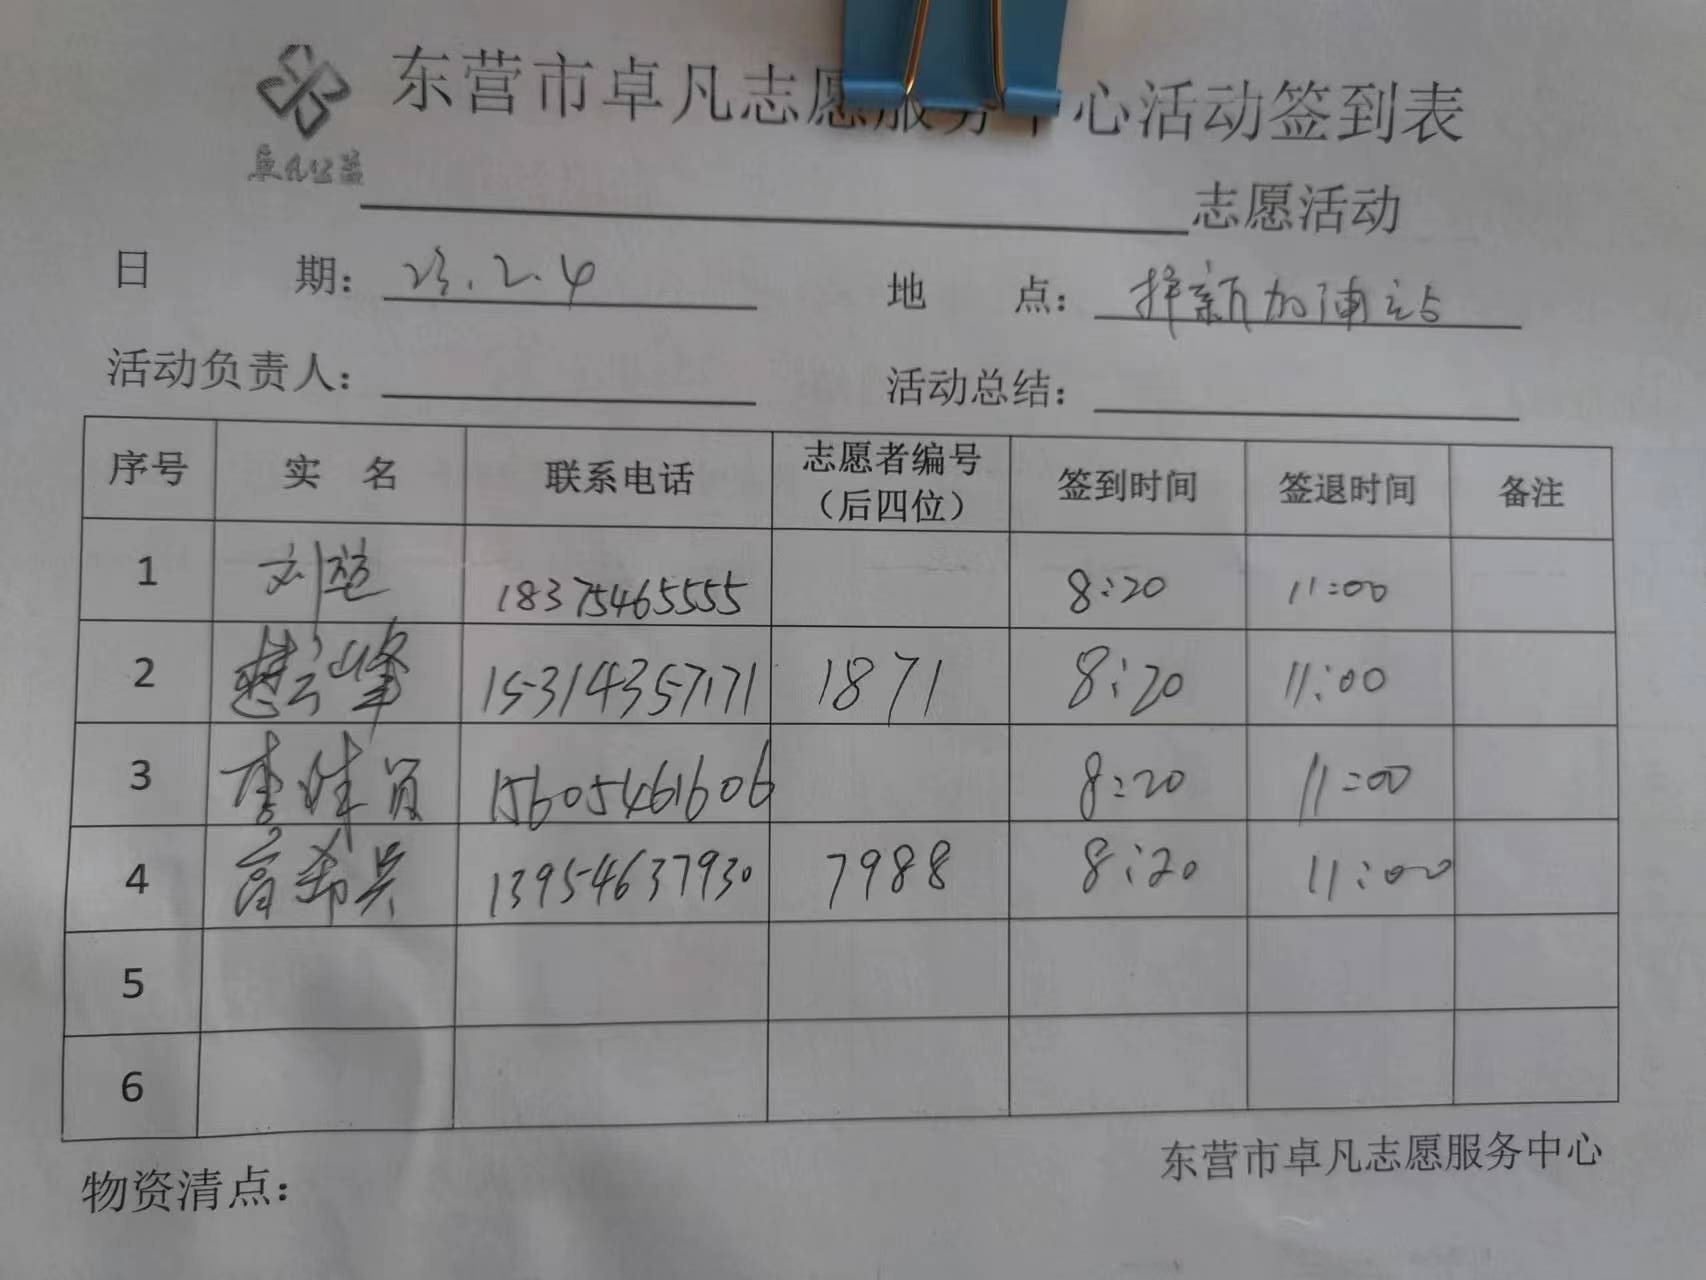 东营市卓凡志愿服务中心活动签到表
卓凡公益
志愿活动
日 期： 23.2.4 地 点： 择新加油站
活动负责人： 活动总结：
序号 实 名 联系电话 志愿者编号（后四位） 签到时间 签退时间 备注
1 刘 18375465555 8:20 11:00
2 云峰 15314357171 1871 8:20 11:00
3 李 15605461606 8:20 11:00
4 13954637930 7988 8:20 11:00
5
6
东营市卓凡志愿服务中心
物资清点：